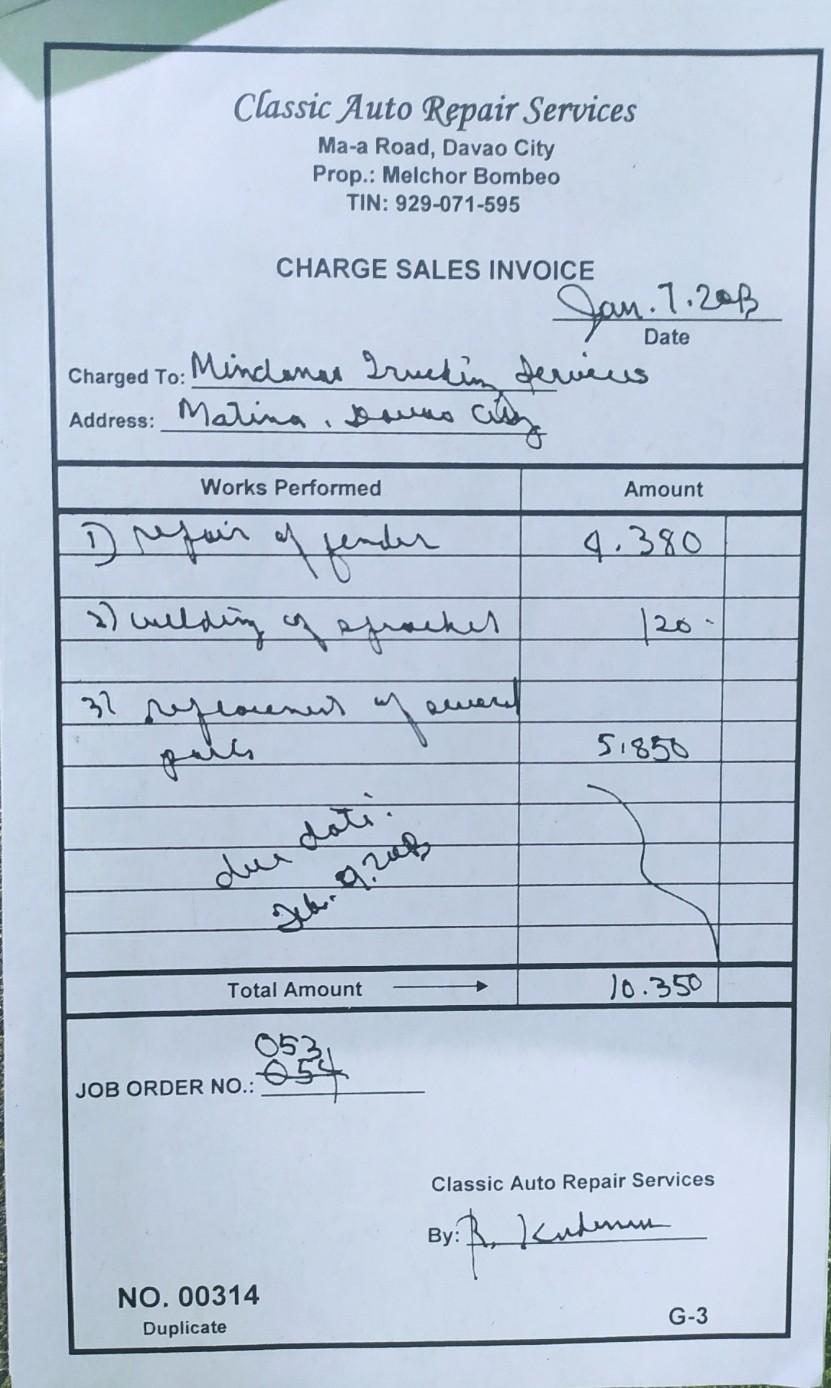 Classic Auto Repair Services
Ma-a Road, Davao City
Prop.: Melchor Bombeo
TIN: 929-071-595
CHARGE SALES INVOICE
Jan. 7. 2013
Date
Charged To: Mindanao Truckin Services
Address: Matina, Davao City
Works Performed Amount
1) repair of fender 4.380
2) welding of sprocket 120-
3) replacement of several
parts 5,850
due date:
Feb. 9. 2013
Total Amount 10.350
053
JOB ORDER NO.: 054
Classic Auto Repair Services
By: R.
NO. 00314
Duplicate
G-3